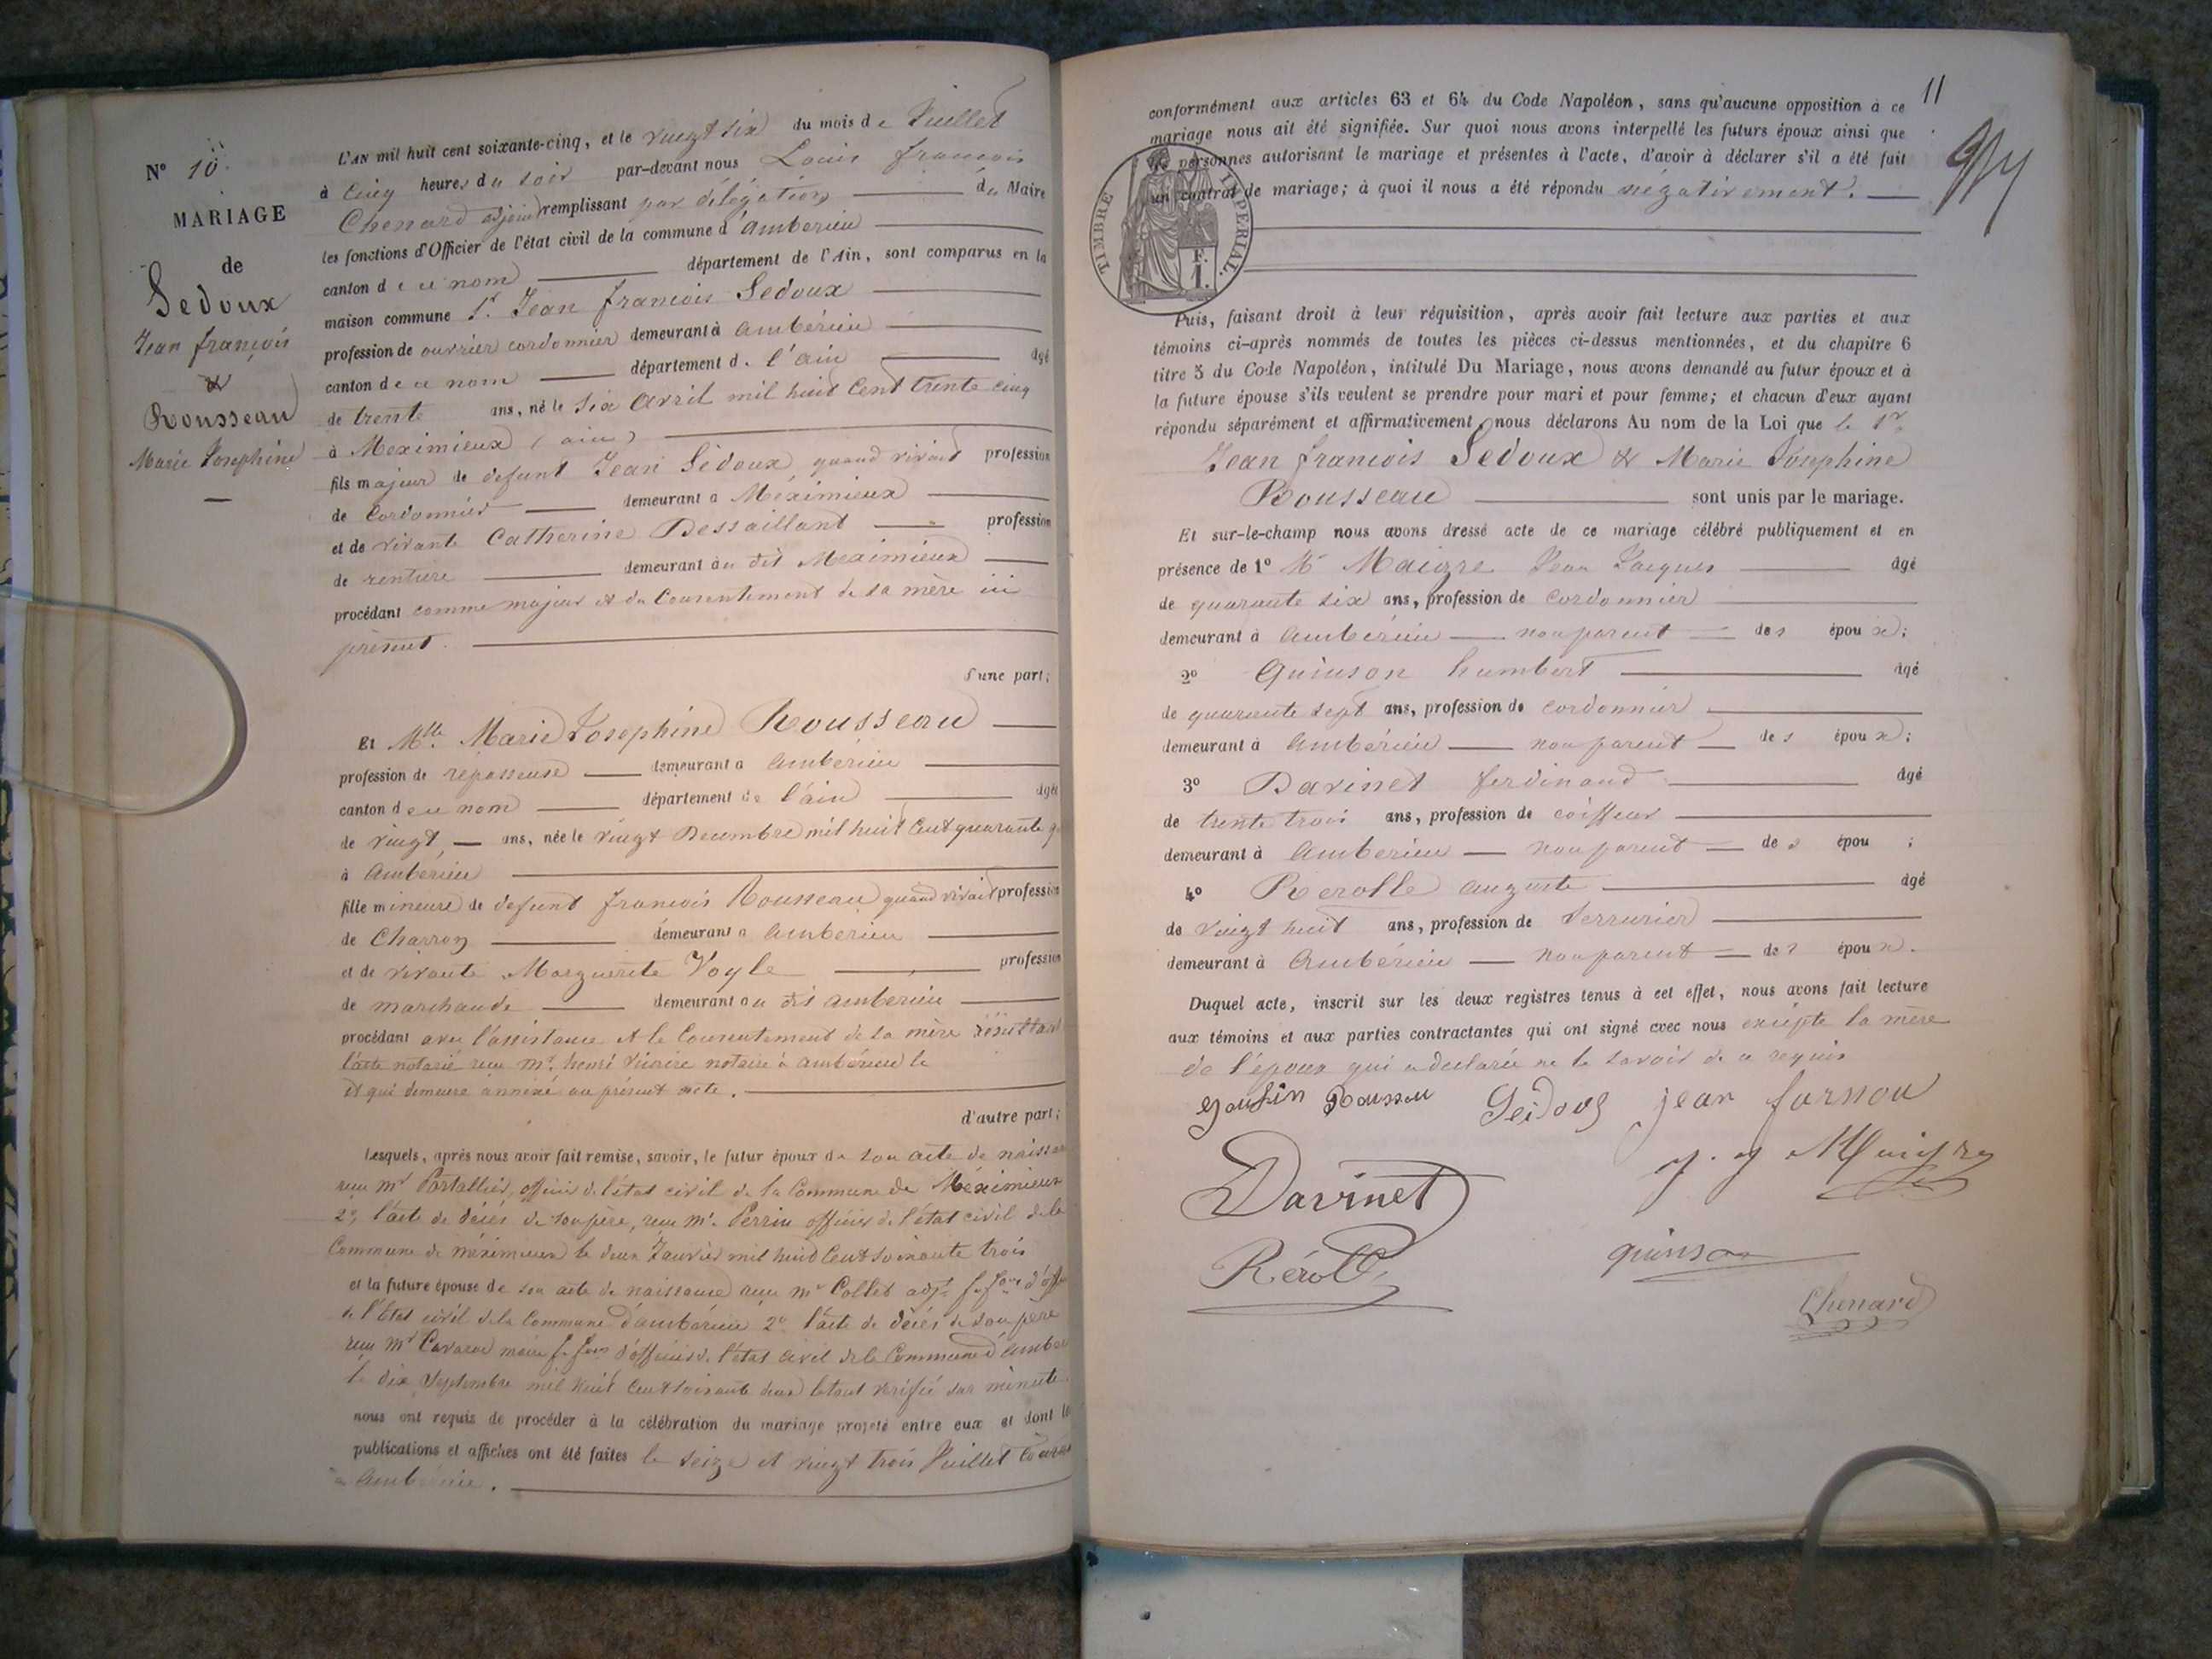 N° 10.
MARIAGE
de
Sedoux
Jean françois
&
Rousseau
Marie Josephine
L'AN mil huit cent soixante-cinq, et le vingt six du mois de Juillet
à cinq heures du soir par-devant nous Louis francois
Chenard adjoint remplissant par délégation du Maire
les fonctions d'Officier de l'état civil de la commune d'ambérieu
canton de ce nom département de l'Ain, sont comparus en la
maison commune 1° Jean francois Sedoux
profession de ouvrier cordonnier demeurant à ambérieu
canton de ce nom département de l'ain âgé
de trente ans, né le six avril mil huit cent trente cinq
à Meximieux (ain)
fils majeur de defunt Jean Sedoux quand vivait profession
de Cordonnier demeurant à Méximieux
et de vivante Catherine Dessaillant profession
de rentière demeurant au dit Meximieux
procédant comme majeur et du Consentement de sa mère ici
présente.
d'une part;
Et Mlle Marie Josephine Rousseau
profession de repasseuse demeurant à ambérieu
canton de ce nom département de l'ain âgée
de vingt ans, née le vingt Decembre mil huit cent quarante
à ambérieu
fille mineure de defunt francois Rousseau quand vivait profession
de Charron demeurant à ambérieu
et de vivante Marguerite Vogle profession
de marchande demeurant au dit ambérieu
procédant avec l'assistance et le Consentement de la mère résultant
l'acte notarié reçu Mr. henri notaire à ambérieu le
et qui demeure annexé au présent acte.
d'autre part;
Lesquels, après nous avoir fait remise, savoir, le futur époux de son acte de naissance
reçu mr Portallier, officier de l'état civil de la Commune de Méximieux
2° l'acte de décés de son père, reçu mr. Perrin officier de l'état civil de la
Commune de méximieux le deux Janvier mil huit cent soixante trois
et la future épouse de son acte de naissance reçu mr Collet adjt
de l'État civil de la Commune d'ambérieu 2° l'acte de décés de son père
reçu mr maire d'officier de l'état civil de la Commune d'amber
le dix Septembre mil huit cent soixante deux le tout vérifié sur minute
nous ont requis de procéder à la célébration du mariage projeté entre eux et dont les
publications et affiches ont été faites le seize et vingt trois Juillet courant
à ambérieu.
11
conformément aux articles 63 et 64 du Code Napoléon, sans qu'aucune opposition à ce
mariage nous ait été signifiée. Sur quoi nous avons interpellé les futurs époux ainsi que
les personnes autorisant le mariage et présentes à l'acte, d'avoir à déclarer s'il a été fait
un contrat de mariage; à quoi il nous a été répondu négativement.
TIMBRE IMPERIAL.
F.
1.
Puis, faisant droit à leur réquisition, après avoir fait lecture aux parties et aux
témoins ci-après nommés de toutes les pièces ci-dessus mentionnées, et du chapitre 6
titre 5 du Code Napoléon, intitulé Du Mariage, nous avons demandé au futur époux et à
la future épouse s'ils veulent se prendre pour mari et pour femme; et chacun d'eux ayant
répondu séparément et affirmativement, nous déclarons Au nom de la Loi que le Sr.
Jean francois Sedoux & Marie Josephine
Rousseau sont unis par le mariage.
Et sur-le-champ nous avons dressé acte de ce mariage célébré publiquement et en
présence de 1° Mr Maigre Jean Jacques âgé
de quarante six ans, profession de cordonnier
demeurant à ambérieu non parent des époux;
2° Quinson humbert âgé
de quarante sept ans, profession de cordonnier
demeurant à ambérieu non parent des époux;
3° Davinet ferdinand âgé
de trente trois ans, profession de coiffeur
demeurant à ambérieu non parent des épou;
4° Rerolle auguste âgé
de vingt huit ans, profession de Serrurier
demeurant à ambérieu non parent des époux.
Duquel acte, inscrit sur les deux registres tenus à cet effet, nous avons fait lecture
aux témoins et aux parties contractantes qui ont signé avec nous excepte la mère
de l'époux qui a declarée ne le savoir de ce requis
Rousseau jean
Davinet
J. J Maigre
Réroll
quinson
Chenard